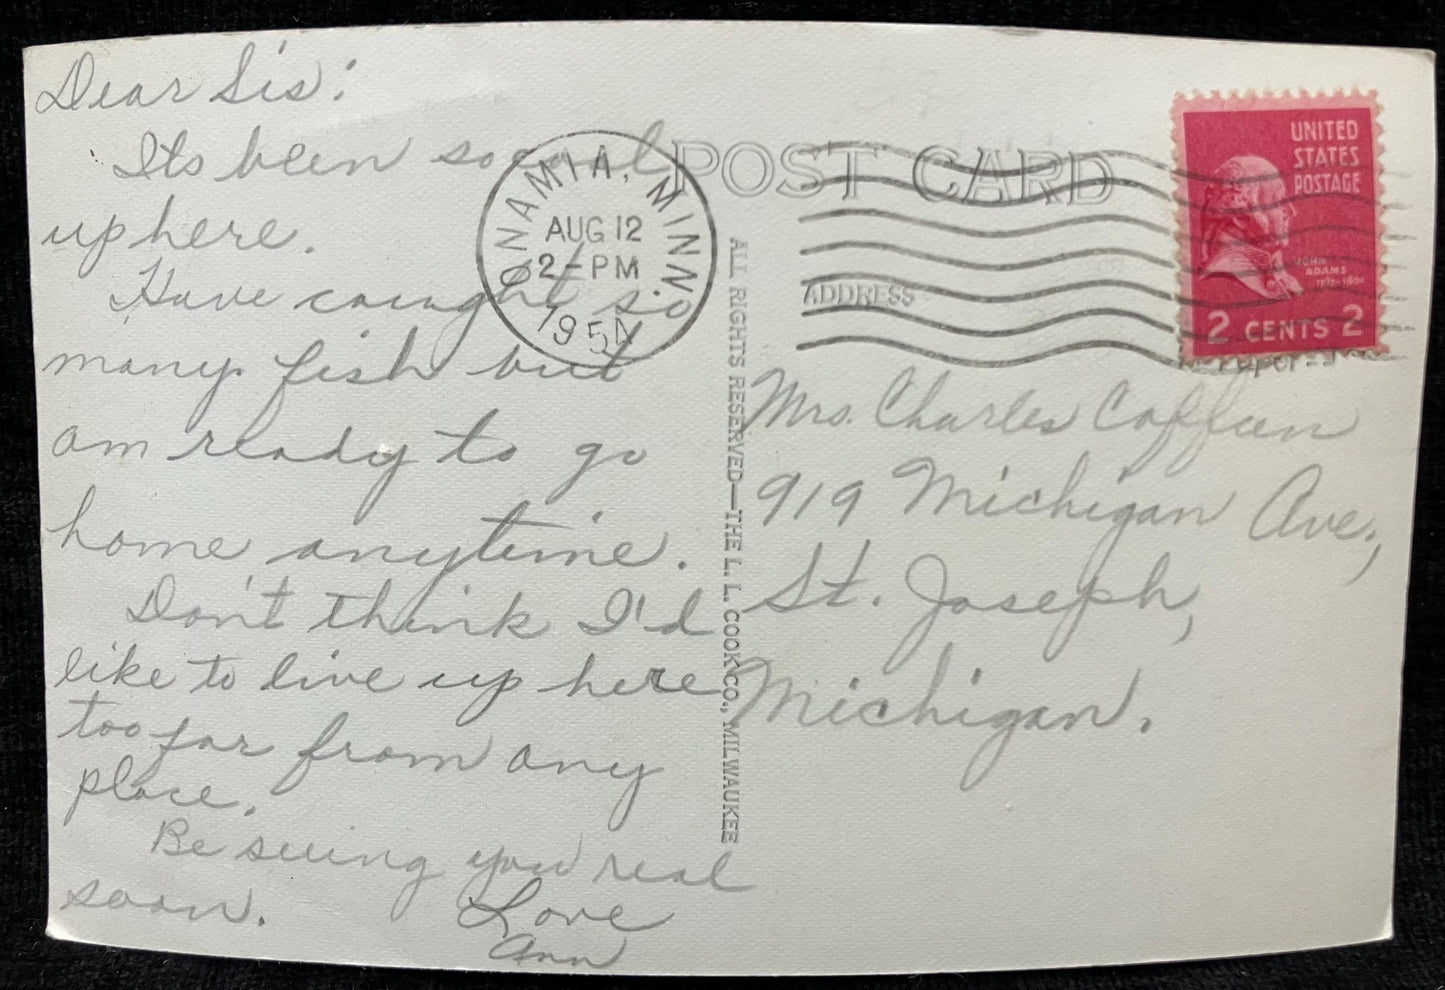 Dear Sis:
Its been so cool
up here.
Have caught so
many fish but
am ready to go
home anytime.
Don't think I'd
like to live up here
too far from any
place.
Be seeing you real
soon.
Love
Ann
ONAMIA, MINN.
AUG 12
2-PM
1954
POST CARD
ADDRESS
ALL RIGHTS RESERVED—THE L. L. COOK CO., MILWAUKEE
UNITED
STATES
POSTAGE
JOHN
ADAMS
2 CENTS 2
Mrs. Charles
919 Michigan Ave.,
St. Joseph,
Michigan.